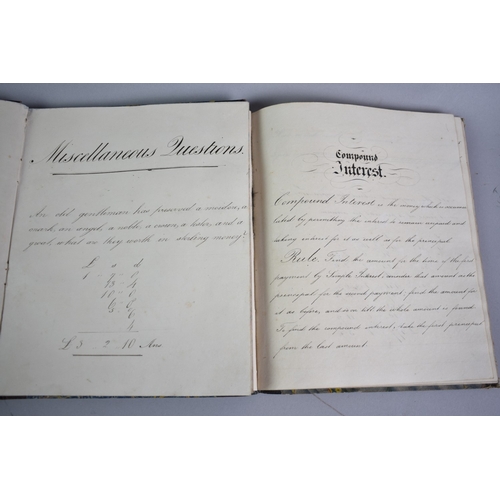 Miscellaneous Questions.
An old gentleman has preserved a moidore, a
mark, an angel, a noble, a crown, a tester, and a
groat, what are they worth in sterling money?
£ s d
13 4
10 0
4
£3 2 10 Ans
Compound
Interest.
Compound Interest is the money which is accumu
lated by permitting the interest to remain unpaid and
asking interest for it as well as for the principal
Rule. Find the amount for the time of the first
payment by Simple Interest, consider that amount as the
principal for the second payment, find the amount for
it as before, and so on till the whole amount is found.
To find the compound interest, take the first principal
from the last amount.